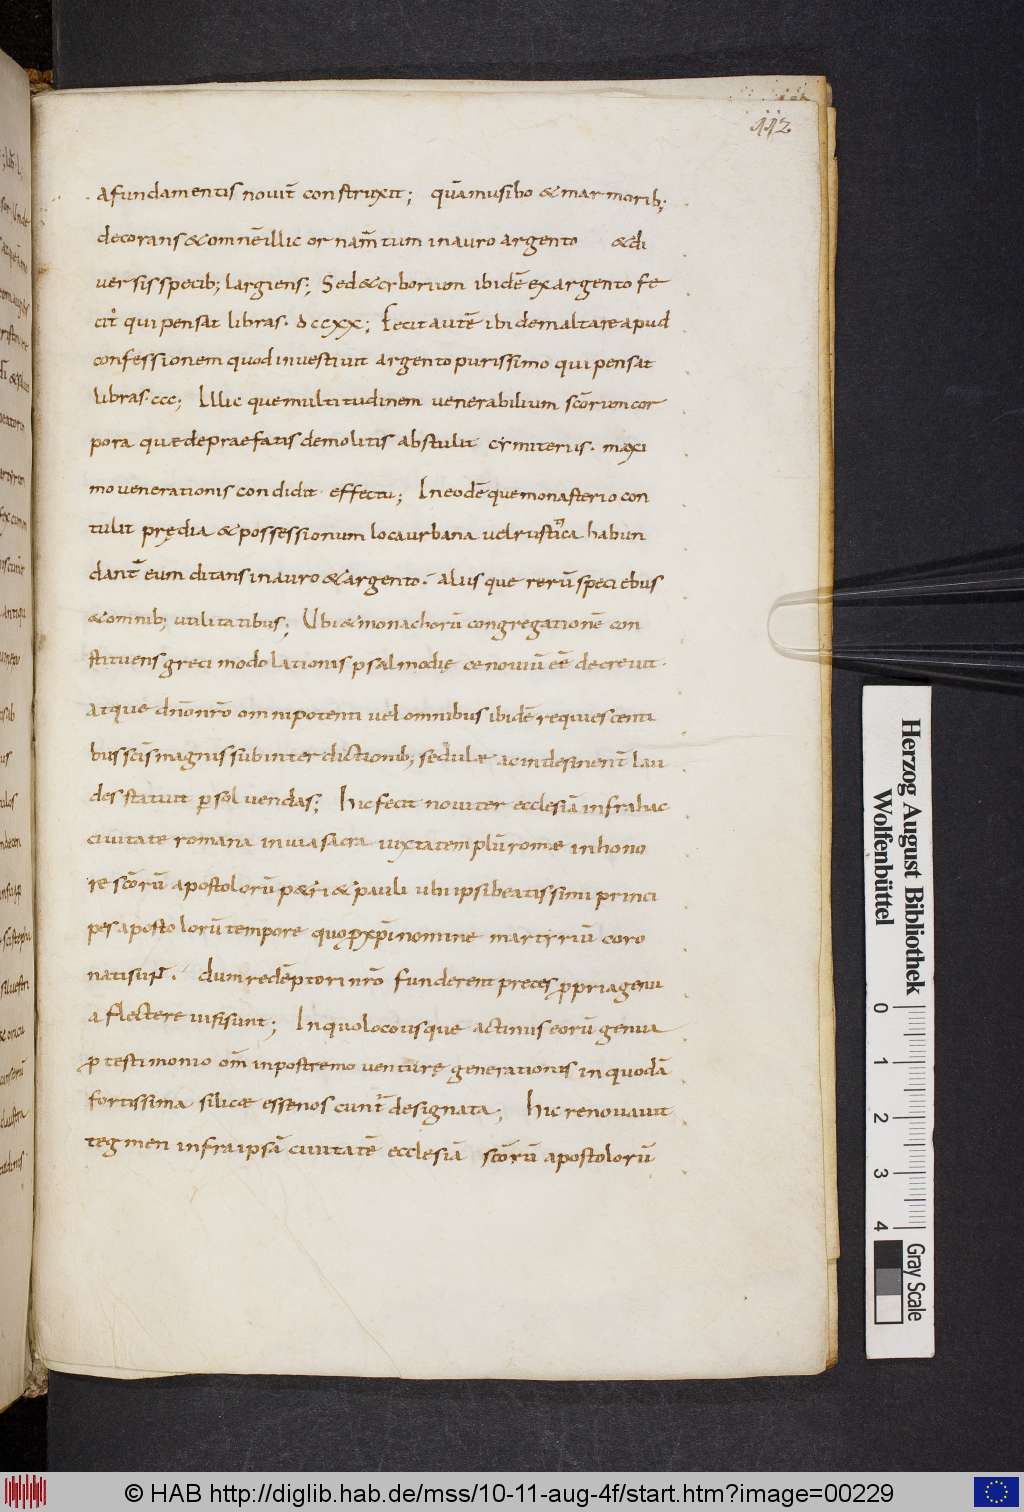 112
a fundamentis noviť construxit; quā musibo & marmorib;
decorans & omnē illic ornam̄tum in auro argento & di
versis specib; largiens; Sed & cyborium ibidē ex argento fe
cit qui pensat libras · dccxx; Fecit autē ibidem altare apud
confessionem quod investivit argento purissimo qui pensat
libras · ccc; Illic que multitudinem venerabilium sc̄orum cor
pora que de praefatis demolitis abstulit cymiteriis · maxi
mo venerationis condidit effectu; In eodē que monasterio con
tulit prędia & possessionum loca urbana vel rustica habun
dant̄ eum ditans in auro & argento · aliis que rerū speciebus
& omnib; utilitatibus; Ubi & monachorū congregationē con
stituens greci modolationis psalmodię cenoviū eē decrevit ·
atque dn̄o nr̄o omnipotenti vel omnibus ibidē requiescenti
bus sc̄is magnis sub interdictionib; sedulae ac indesinent̄ lau
des statuit ꝑsolvendas; Hic fecit noviter ecclesiā infra hac
civitate romana in via sacra iuxta templū romae in hono
re sc̄orū apostolorū p&ri & pauli ubi ipsi beatissimi princi
pes apostolorū tempore quo ꝓ xp̄i nomine martyriū coro
nati sun̄t · dum redēptori nr̄o funderent preces ꝓpria genu
a flectere visi sunt; In quo loco usque actinus eorū genua
ꝓ testimonio om̄ in postremo venturę generationis in quodā
fortissima silice esse noscunt̄ designata; Hic renovavit
tegmen infra ipsā civitatē ecclesiā sc̄orū apostolorū
Herzog August Bibliothek
Wolfenbüttel
0 1 2 3 4
Gray Scale
© HAB http://diglib.hab.de/mss/10-11-aug-4f/start.htm?image=00229